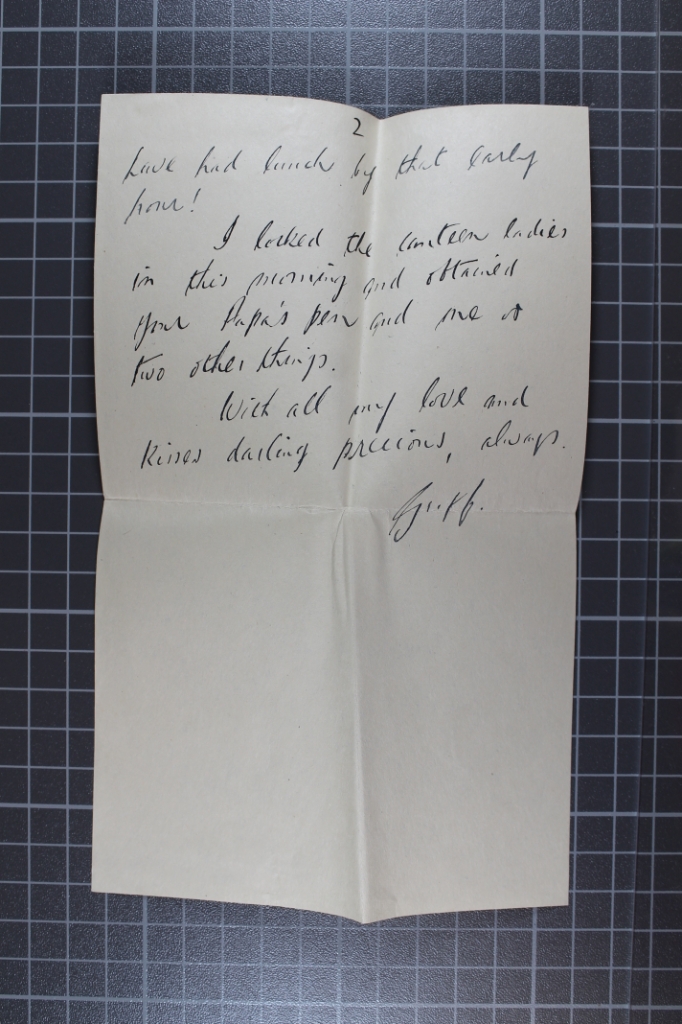 2
have had lunch by that early
hour!
I locked the canteen ladies
in this morning and obtained
your Papa's pen and one or
two other things.
With all my love and
kisses darling precious, always.
Griff.